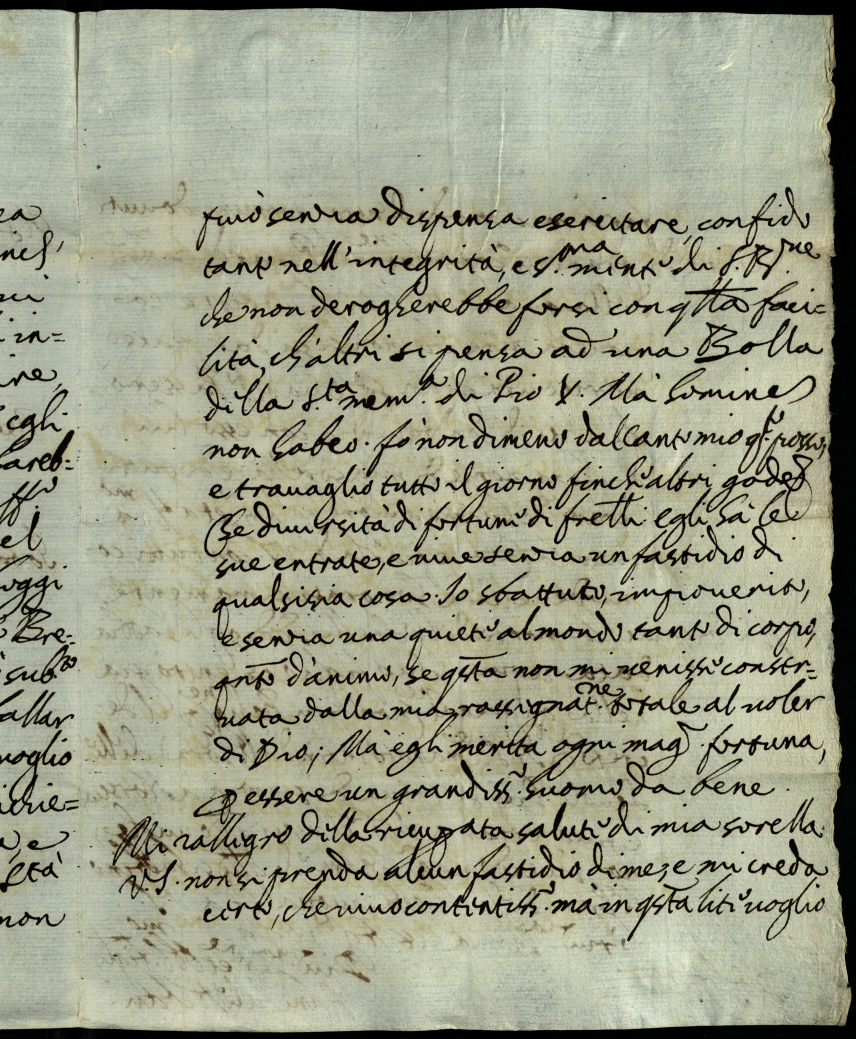 ea
inci
in=
ine,
egli
sareb=
el
hoggi
Bre=
sub.to
fallar
voglio
chie=
a, e
stà
non
può senza dispensa esercitare, confido
tanto nell'integrità, e s.ma mente di S. B.ne
che non derogherebbe forsi con q.lla faci=
lità, ch'altri si pensa ad una Bolla
della S.ta mem.a di Pio V. Mà homines
non habeo. fò nondimeno dal Canto mio q.to posso,
e travaglio tutto il giorno finche altri gode
Che diversità di fortune di fr̃elli egli hà le
sue entrate, e vive senza un fastidio di
qualsisia cosa. Io sbattuto, impoverito,
e senza una quiete al mondo tanto di corpo,
qnto d'animo, se qsta non mi venisse conser=
vata dalla mia rassegnat.ne totale al voler
di Dio; Mà egli merita ogni mag.r fortuna,
p essere un grandiss.o huomo da bene.
Mi rallegro della ricuperata salute di mia sorella.
V.S. non si prenda alcun fastidio di me, e mi creda
certo, che vivo contentiss.o mà in qsta lite voglio